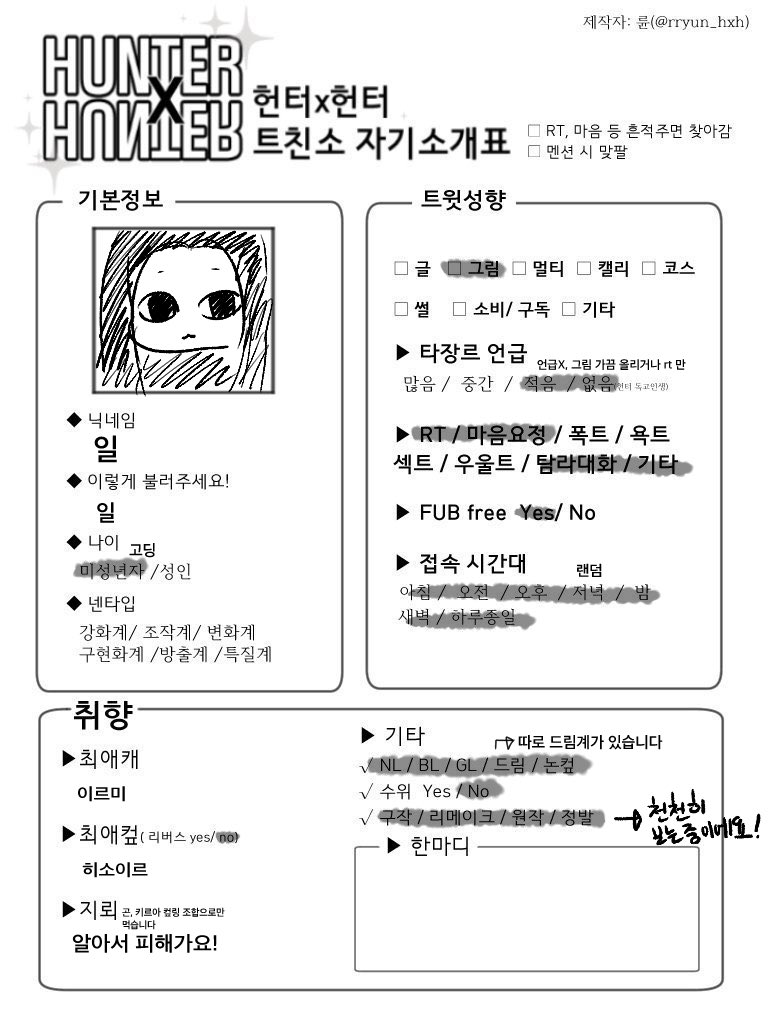 제작자: 륜(@rryun_hxh)
HUNTER
X
HUNTER
헌터x헌터
트친소 자기소개표
□ RT, 마음 등 흔적주면 찾아감
□ 멘션 시 맞팔
기본정보
◆ 닉네임
일
◆ 이렇게 불러주세요!
일
◆ 나이 고딩
미성년자 /성인
◆ 넨타입
강화계/ 조작계/ 변화계
구현화계 /방출계 /특질계
트윗성향
□ 글 □ 그림 □ 멀티 □ 캘리 □ 코스
□ 썰 □ 소비/ 구독 □ 기타
▶ 타장르 언급 언급X, 그림 가끔 올리거나 rt 만
많음 / 중간 / 적음 / 없음(헌터 독고인생)
▶ RT / 마음요정 / 폭트 / 욕트
섹트 / 우울트 / 탐라대화 / 기타
▶ FUB free Yes/ No
▶ 접속 시간대 랜덤
아침 / 오전 / 오후 / 저녁 / 밤
새벽 / 하루종일
취향
▶최애캐
이르미
▶최애컾( 리버스 yes/ no)
히소이르
▶지뢰 곤, 키르아 컾링 조합으로만
먹습니다
알아서 피해가요!
▶ 기타
따로 드림계가 있습니다
√ NL / BL / GL / 드림 / 논컾
√ 수위 Yes / No
√ 구작 / 리메이크 / 원작 / 정발
천천히
보는중이에요!
▶ 한마디